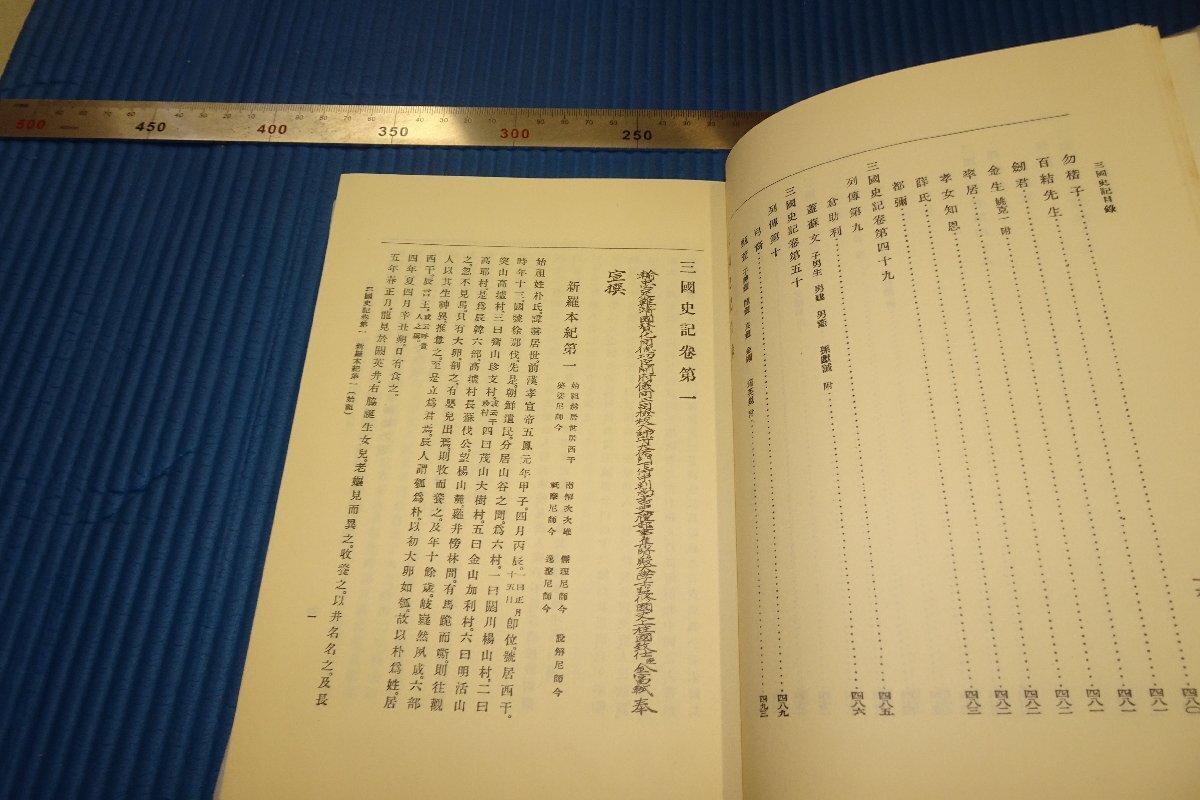 三國史記目錄
勿稽子
百結先生
劍君
金生 姚克一 附
率居
孝女知恩
薛氏
都彌
三國史記卷第四十九
列傳第九
倉助利
蓋蘇文 子男生 男建 男產 孫獻誠 附
三國史記卷第五十
列傳第十
弓裔
甄萱
四八〇
四八一
四八一
四八一
四八二
四八二
四八三
四八五
四八六
四八九
四九三
三國史記卷第一
宣撰
新羅本紀第一
始祖赫居世居西干 南解次次雄 儒理尼師今 脫解尼師今
婆娑尼師今 祇摩尼師今 逸聖尼師今
始祖姓朴氏、諱赫居世、前漢孝宣帝五鳳元年甲子、四月丙辰、一曰正月十五日卽位、號居西干。
時年十三、國號徐那伐、先是、朝鮮遺民、分居山谷之間、爲六村、一曰閼川楊山村、二曰
突山高墟村、三曰觜山珍支村、或云干珍村四曰茂山大樹村、五曰金山加利村、六曰明活山
高耶村、是爲辰韓六部、高墟村長蘇伐公、望楊山麓、蘿井傍林間、有馬跪而嘶、則往觀
之、忽不見馬、只有大卵、剖之、有嬰兒出焉、則收而養之、及年十餘歲、岐嶷然夙成、六部
人以其生神異、推尊之、至是立爲君焉、辰人謂瓠爲朴、以初大卵如瓠、故以朴爲姓、居
西干、辰言王、或云呼貴人之稱
四年夏四月辛丑朔、日有食之。
五年春正月、龍見於閼英井、右脇誕生女兒、老嫗見而異之、收養之、以井名名之、及長
三國史記卷第一 新羅本紀第一（始祖）
一
500
450
400
350
300
250